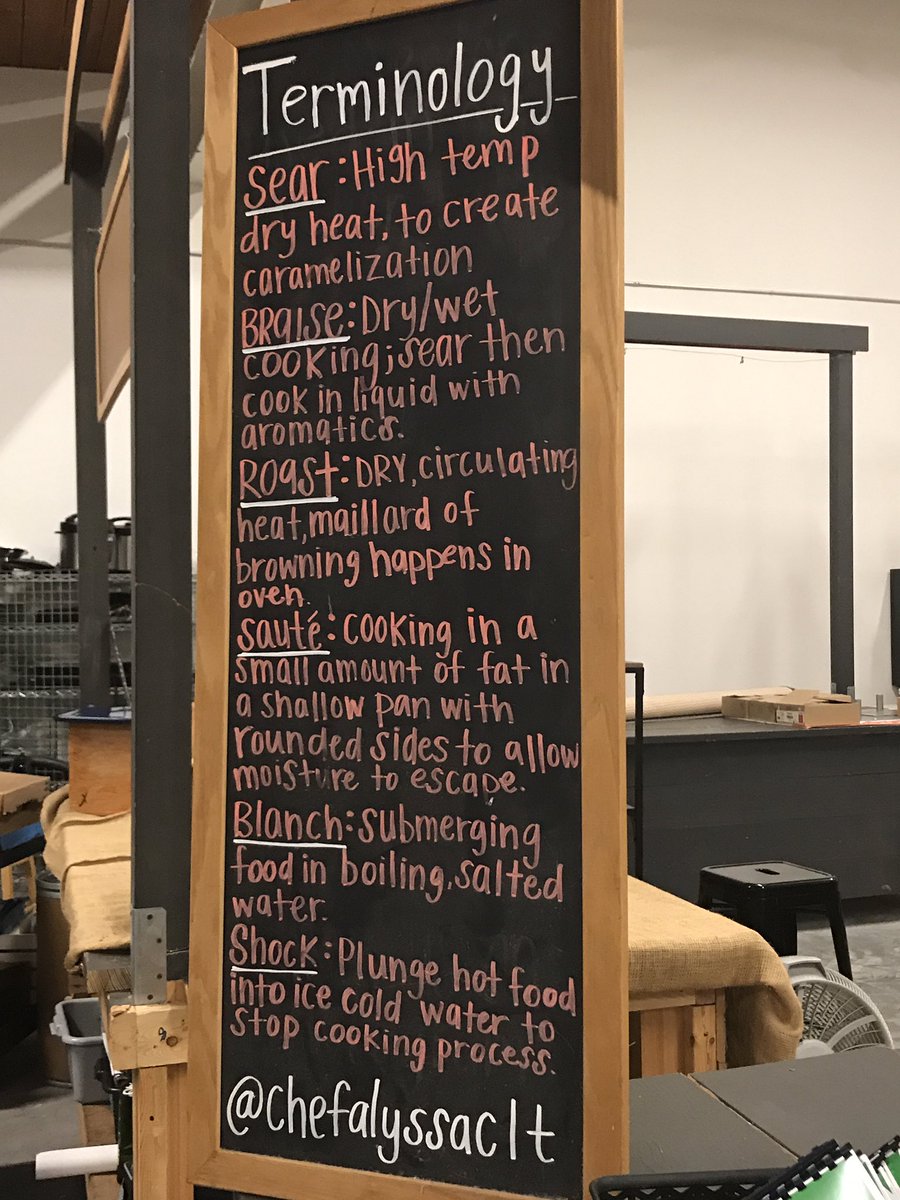 Terminology
Sear: High temp
dry heat, to create
caramelization
BRaise: Dry/wet
cooking; sear then
cook in liquid with
aromatics.
ROast: DRY, circulating
heat, maillard of
browning happens in
oven.
Sauté: cooking in a
small amount of fat in
a shallow pan with
rounded sides to allow
moisture to escape.
Blanch: submerging
food in boiling, salted
water.
Shock: Plunge hot food
into ice cold water to
stop cooking process.
@chefalyssaclt